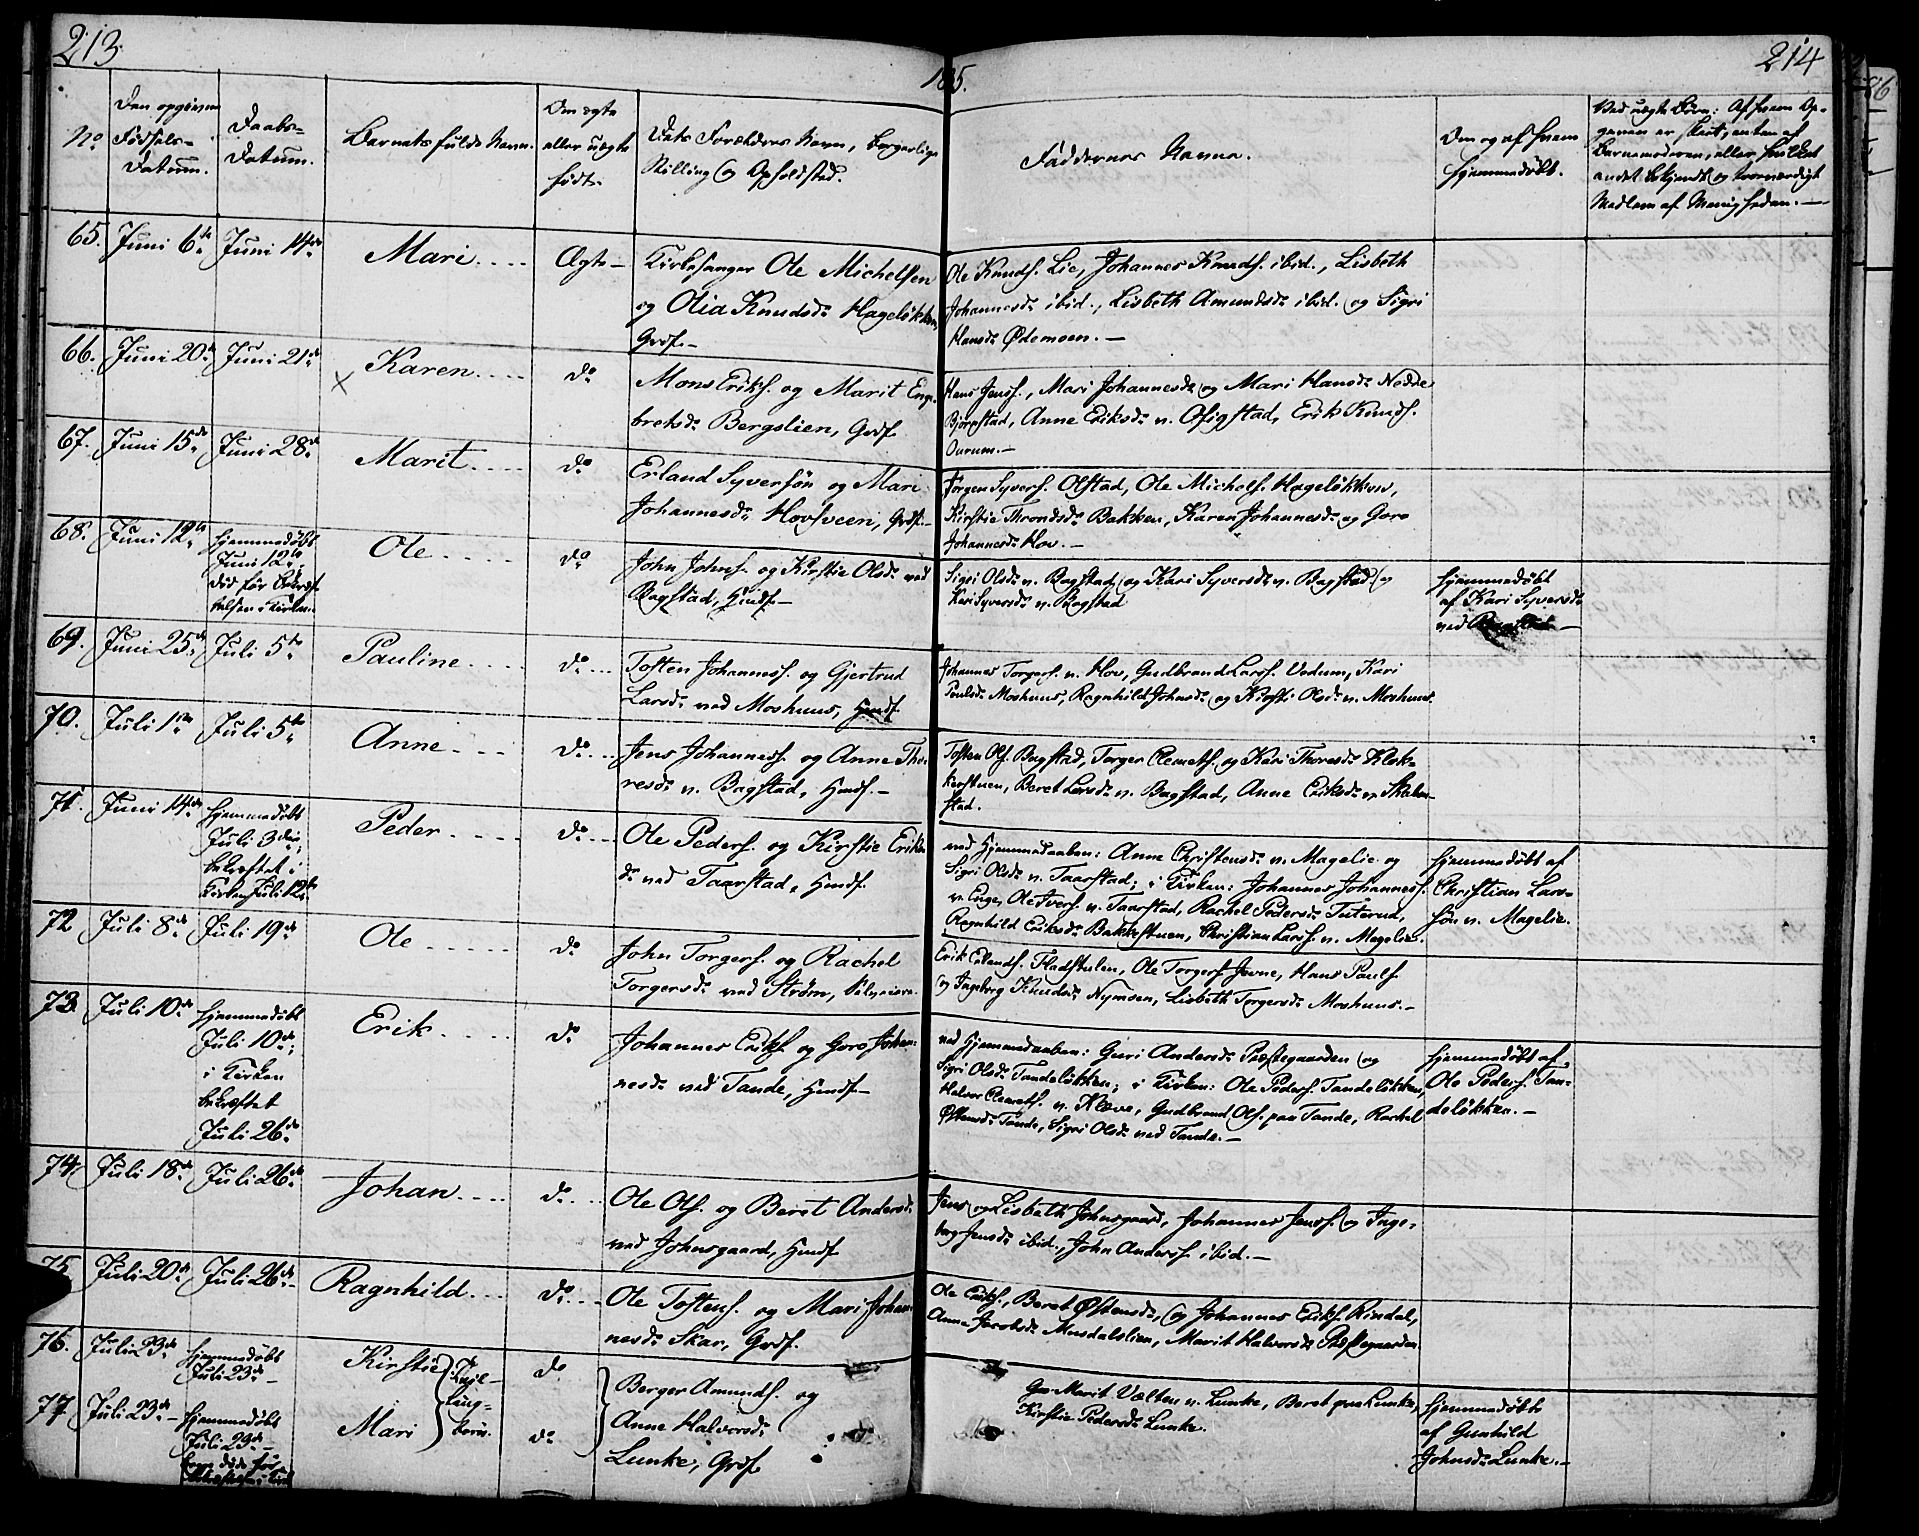 213.
185.
214
No
Den opgivne
Fødsels-
Datum.
Daabs-
Datum.
Barnets fulde Navn.
Om ægte
eller uægte
født.
Dets Forældres Navn, Borgerlige
Stilling og Opholdsted.
Faddernes Navne.
Om og af hvem
hjemmedøbt.
Ved uægte Børn: Af hvem Op-
gaven er skeet, enten af
Barnemoderen, eller hvilket
andet bekjendt og troværdigt
Medlem af Menigheden.
65. Juni 6te Juni 14de Mari.... Ægte
Kirkesanger Ole Michelsen
og Olia Knudsdr Hageløkken,
Grdf.
Ole Knuds. Lie, Johannes Knuds. ibid., Lisbeth
Johannesdr ibid., Lisbeth Amundsdr ibid. og Sigri
Hansdr Ødemoen.
66. Juni 20de Juni 21de Karen.... do
Mons Eriks. og Marit Eng-
bretsdr Bergslien, Grdf.
Hans Jenss., Mari Johannesdr og Mari Hansdr Nedre
Bjørgstad, Anne Eriksdr v. Ofigstad, Erik Knuds.
Aurum.
67. Juni 15de Juni 28de Marit.... do
Erland Syversøn og Mari
Johannesdr Hovsveen, Grdf.
Jørgen Syvers. Olstad, Ole Michels. Hageløkken,
Kirstie Throndsdr Bakken, Karen Johannesdr og Goro
Johannesdr Hov.
68. Juni 12te
hjemmedøbt
Juni 12te,
død før Bekræf-
telsen i Kirken.
Ole.... do
John Johns. og Kirstie Olsdr ved
Bagstad, Hmdf.
Sigri Olsdr v. Bagstad og Kari Syversdr v. Bagstad og
Kari Syversdr v. Bagstad
hjemmedøbt
af Kari Syversdr
ved Bagstad.
69. Juni 25de Juli 5te Pauline.... do
Tosten Johanness. og Gjertrud
Larsdr ved Moshuus, Hmdf.
Johannes Torgers. v. Hov, Gudbrand Lars. Vedum, Kari
Poulsdr Moshuus, Ragnhild Johnsdr og Kirsti Olsdr v. Moshuus.
70. Juli 1ste Juli 5te Anne.... do
Jens Johanness. og Anne Tho-
resdr v. Bagstad, Hmdf.
Tosten Ols. Bagstad, Torger Clemets. og Kari Thoresdr Klok-
kerstuen, Beret Larsdr v. Bagstad, Anne Eriksdr v. Skaben-
stad.
71. Juni 14de
hjemmedøbt
Juli 3die;
bekræftet i
Kirken Juli 12te
Peder.... do
Ole Peders. og Kirstie Eriks-
dr ved Taarstad, Hmdf.
ved Hjemmedaaben: Anne Christensdr v. Magelie og
Sigri Olsdr v. Taarstad; i Kirken: Johannes Johanness.
v. Enge, Ole Ivers. v. Taarstad, Rachel Pedersdr Tuterud,
Ragnhild Eriksdr Bakkestuen, Christian Lars. v. Magelie.
hjemmedøbt af
Christian Lars-
søn v. Magelie.
72 Juli 8de Juli 19de Ole.... do
John Torgers. og Rachel
Torgersdr ved Strøm,
Erik Erlands. Fladstulen, Ole Torgers. Jevne, Hans Pauls.
og Ingeborg Knudsdr Nymoen, Lisbeth Torgersdr Moshuus.
73 Juli 10de
hjemmedøbt
Juli 10de;
i Kirken
bekræftet
Juli 26de
Erik.... do
Johannes Eriks. og Goro Johan-
nesdr ved Tande, Hmdf.
ved Hjemmedaaben: Guri Andersdr Præstegaarden og
Sigri Olsdr Tandeløkken; i Kirken: Ole Peders. Tandeløkken,
Halvor Clemets. v. Kleve, Gudbrand Ols. paa Tande, Rachel
Østensdr Tande, Sigri Olsdr ved Tande.
hjemmedøbt af
Ole Peders. Tan-
deløkken.
74. Juli 18de Juli 26de Johan.... do
Ole Ols. og Beret Andersdr
ved Johnsgaard, Hmdf.
Jens og Lisbeth Johnsgaard, Johannes Jenss. og Inge-
borg Jensdr ibid., John Anders. ibid.
75. Juli 20de Juli 26de Ragnhild... do
Ole Tostens. og Mari Johan-
nesdr Skar, Grdf.
Ole Eriks., Beret Østensdr og Johannes Eriks. Rindal,
Anne Jacobsdr Musdalslien, Marit Halvorsdr Præstegaarden
76. Juli 23de
hjemmedøbt
Juli 23de
Kirstie
Tvil-
ling-
børn.
do
77 Juli 23de
hjemmedøbt
Juli 23de
Mari
do
Berger Amunds. og
Anne Halvorsdr
Lunke, Grdf.
Marit Vælten v. Lunke, Beret paa Lunke,
Kirstie Pedersdr Lunke.
hjemmedøbte
af Gunhild
Johnsdr Lunke.
86